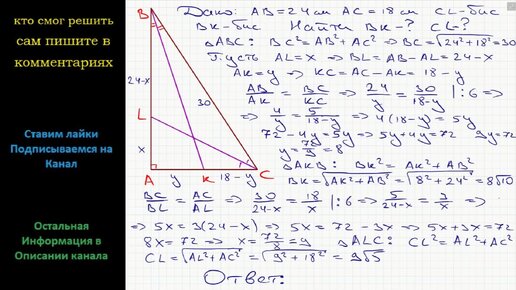 кто смог решить
сам пишите в
комментариях
Ставим лайки
Подписываемся на
Канал
Остальная
Информация в
Описании канала
B
24-x
L
x
A
y
K
18-y
C
30
Дано: AB=24см AC=18см CL-бис
BK-бис Найти BK-? CL-?
△ABC: BC²=AB²+AC² ⇒ BC=√24²+18²=30
Пусть AL=x ⇒ BL=AB-AL=24-x
AK=y ⇒ KC=AC-AK=18-y
AB/AK = BC/KC ⇒ 24/y = 30/18-y |:6 ⇒
⇒ 4/y = 5/18-y ⇒ 4(18-y)=5y
72-4y=5y ⇒ 5y+4y=72 9y=72
y=72/9=8
△AKB: BK²=AK²+AB²
BK=√AK²+AB² = √8²+24² = 8√10
BC/BL = AC/AL ⇒ 30/24-x = 18/x |:6 ⇒ 5/24-x = 3/x ⇒
⇒ 5x=3(24-x) ⇒ 5x=72-3x ⇒ 5x+3x=72
8x=72 ⇒ x=72/8=9 △ALC: CL²=AL²+AC²
CL=√AL²+AC² = √9²+18² = 9√5
Ответ: